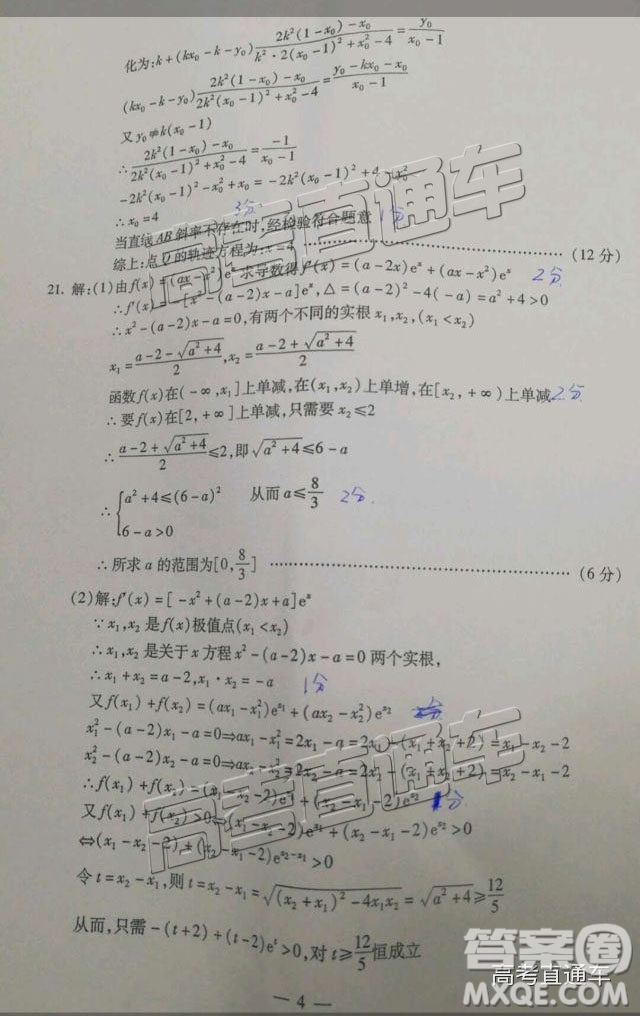 化为:k+(kx₀-k-y₀)\frac{2k²(1-x₀)-x₀}{k²·2(x₀-1)²+x₀²-4}=\frac{y₀}{x₀-1}
(kx₀-k-y₀)\frac{2k²(1-x₀)-x₀}{2k²(x₀-1)²+x₀²-4}=\frac{y₀-kx₀-x₀}{x₀-1}
又y₀≠k(x₀-1)
∴\frac{2k²(1-x₀)-x₀}{2k²(x₀-1)²+x₀²-4}=\frac{-1}{x₀-1}
-2k²(x₀-1)²-x₀²+x₀=-2k²(x₀-1)²+4-x₀²
∴x₀=4 3分
当直线AB斜率不存在时,经检验符合题意 1分
综上:点D的轨迹方程为:x=4 ……………………(12分)
21. 解:(1)由f(x)=(ax-x²)eˣ求导数得f'(x)=(a-2x)eˣ+(ax-x²)eˣ 2分
∴f'(x)=-[x²-(a-2)x-a]eˣ,△=(a-2)²-4(-a)=a²+4>0
∴x²-(a-2)x-a=0,有两个不同的实根x₁,x₂,(x₁<x₂)
x₁=\frac{a-2-√(a²+4)}{2},x₂=\frac{a-2+√(a²+4)}{2}
函数f(x)在(-∞,x₁]上单减,在(x₁,x₂)上单增,在[x₂,+∞)上单减 2分
∴要f(x)在[2,+∞]上单减,只需要x₂≤2
∴\frac{a-2+√(a²+4)}{2}≤2,即√(a²+4)≤6-a
∴{a²+4≤(6-a)² 从而a≤\frac{8}{3} 2分
6-a>0
∴所求a的范围为[0,\frac{8}{3}] ……………………(6分)
(2)解:f'(x)=[-x²+(a-2)x+a]eˣ
∵x₁,x₂是f(x)极值点(x₁<x₂)
∴x₁,x₂是关于x方程x²-(a-2)x-a=0两个实根,
∴x₁+x₂=a-2,x₁·x₂=-a 1分
又f(x₁)+f(x₂)=(ax₁-x₁²)e^{x₁}+(ax₂-x₂²)e^{x₂}
x₁²-(a-2)x₁-a=0⇒ax₁-x₁²=2x₁-a=2x₁-(x₁+x₂+2)=x₁-x₂-2
x₂²-(a-2)x₂-a=0⇒ax₂-x₂²=2x₂-a=2x₂-(x₁+x₂+2)=x₂-x₁-2
∴f(x₁)+f(x₂)=(x₁-x₂-2)e^{x₁}+(x₂-x₁-2)e^{x₂} 1分
又f(x₁)+f(x₂)>0⇔(x₁-x₂-2)e^{x₁}+(x₂-x₁-2)e^{x₂}>0
⇔(x₁-x₂-2)+(x₂-x₁-2)e^{x₂-x₁}>0
令t=x₂-x₁,则t=x₂-x₁=√((x₂+x₁)²-4x₁x₂)=√(a²+4)≥\frac{12}{5}
从而,只需-(t+2)+(t-2)eᵗ>0,对t≥\frac{12}{5}恒成立
— 4 —
高考直通车
高考直通车
答案圈
高考直通车
MXQE.COM